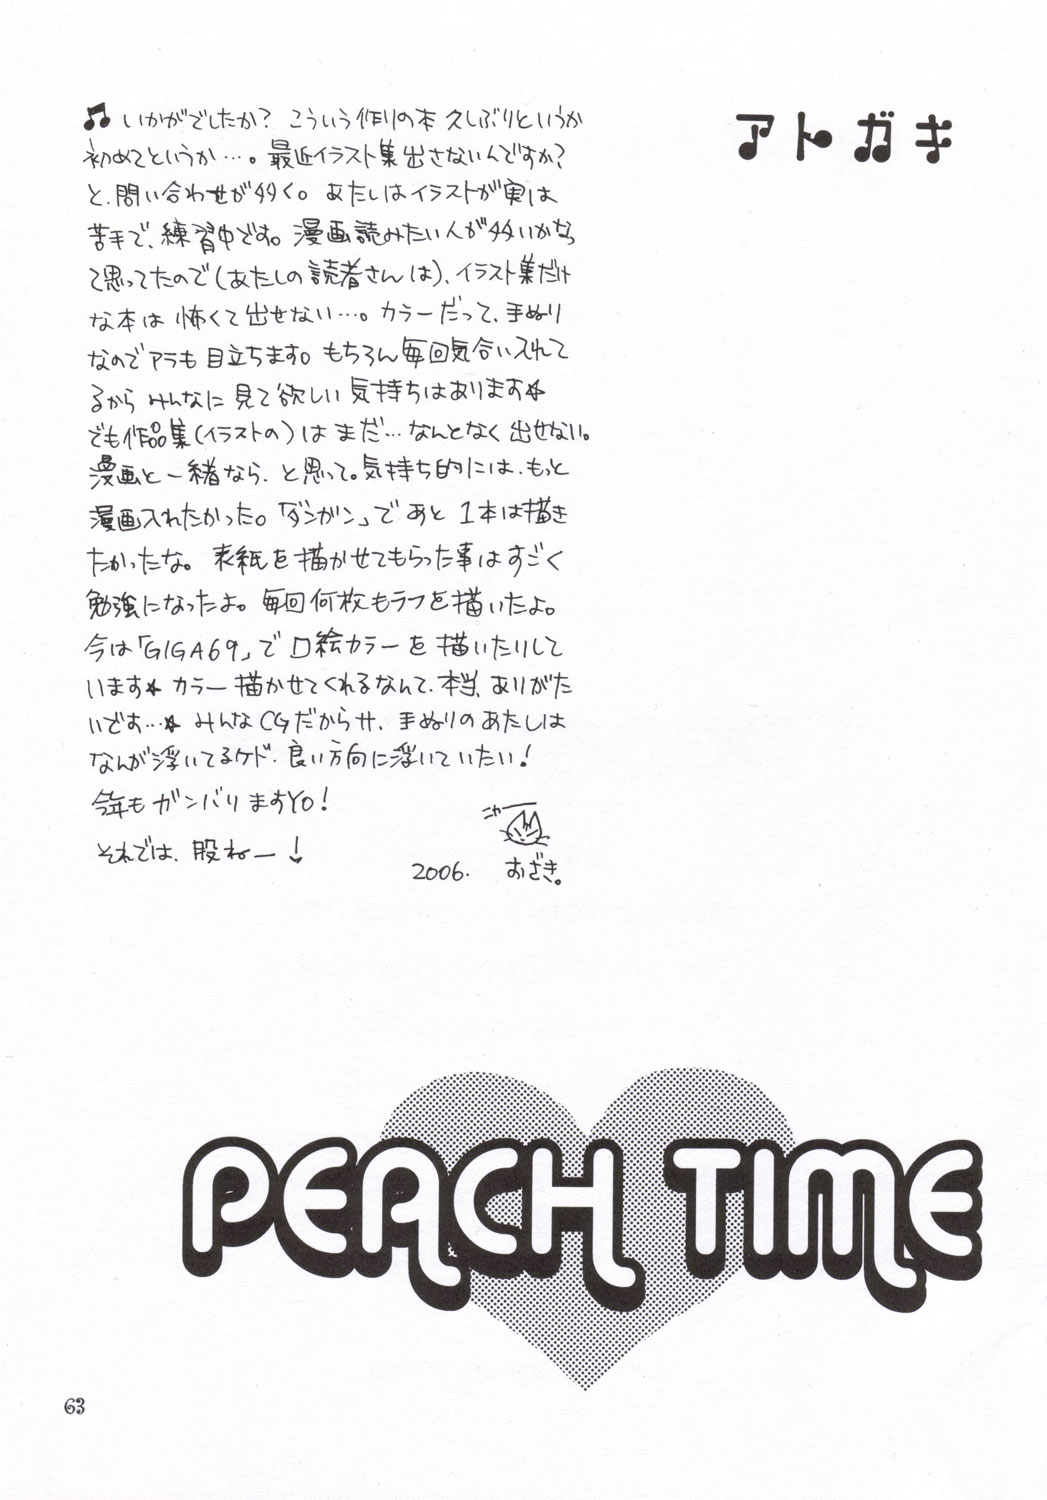 アトガキ
♫ いかがでしたか？ こういう作りの本 久しぶりというか
初めてというか…。最近イラスト集出さないんですか？
と、問い合わせが多く。あたしはイラストが実は
苦手で、練習中です。漫画読みたい人が多いかなっ
て思ってたので(あたしの読者さんは)、イラスト集だけ
な本は 怖くて出せない…。カラーだって、手ぬり
なのでアラも目立ちます。もちろん毎回気合い入れて
るから みんなに見て欲しい気持ちはあります★
でも作品集(イラストの)は まだ…なんとなく出せない。
漫画と一緒なら、と思って。気持ち的には、もっと
漫画入れたかった。「ダンガン」であと 1本は描き
たかったな。表紙を描かせてもらった事はすごく
勉強になったよ。毎回何枚もラフを描いたよ。
今は「GIGA69」で口絵カラーを描いたりして
います★ カラー描かせてくれるなんて、本当、ありがた
いです…★ みんなCGだからサ、手ぬりのあたしは
なんか浮いてるケド、良い方向に浮いていたい！
今年もガンバりますYO！
それでは、股ねー！
ニャー
2006. おざき。
PEACH TIME
63